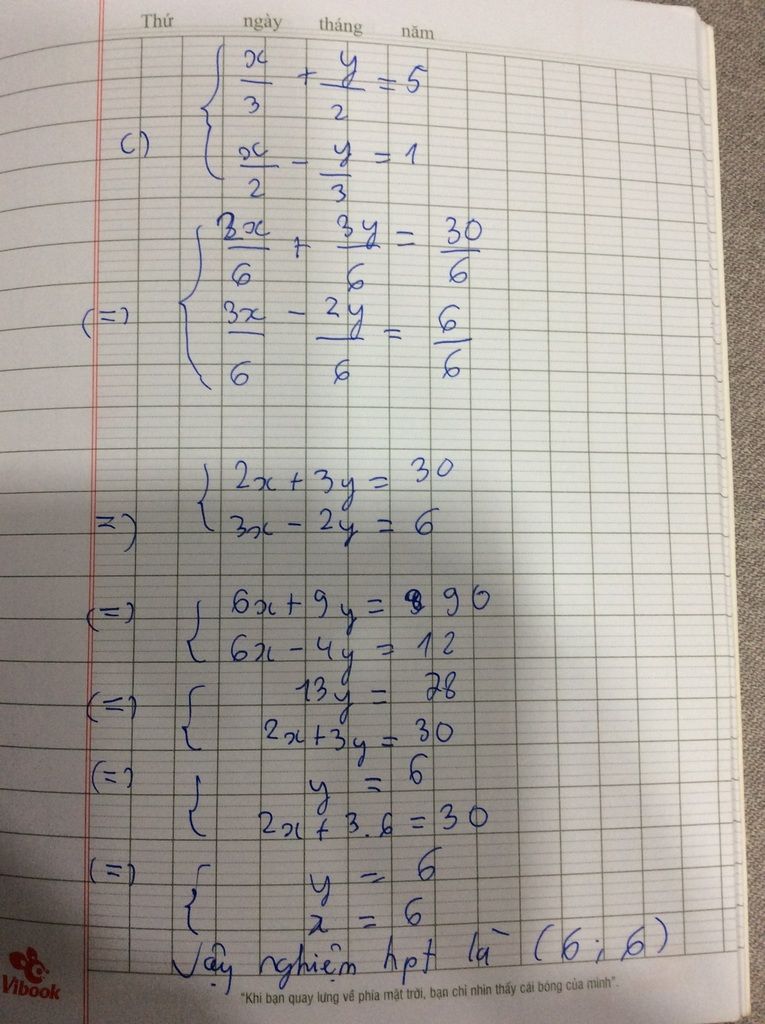 Thứ ngày tháng năm
c) { x/3 + y/2 = 5
x/2 - y/3 = 1
(=) { 2x/6 + 3y/6 = 30/6
3x/6 - 2y/6 = 6/6
=) { 2x + 3y = 30
3x - 2y = 6
(=) { 6x + 9y = 90
6x - 4y = 12
(=) { 13y = 78
2x + 3y = 30
(=) { y = 6
2x + 3.6 = 30
(=) { y = 6
x = 6
Vậy nghiệm hpt là (6; 6)
Vibook
"Khi bạn quay lưng về phía mặt trời, bạn chỉ nhìn thấy cái bóng của mình".